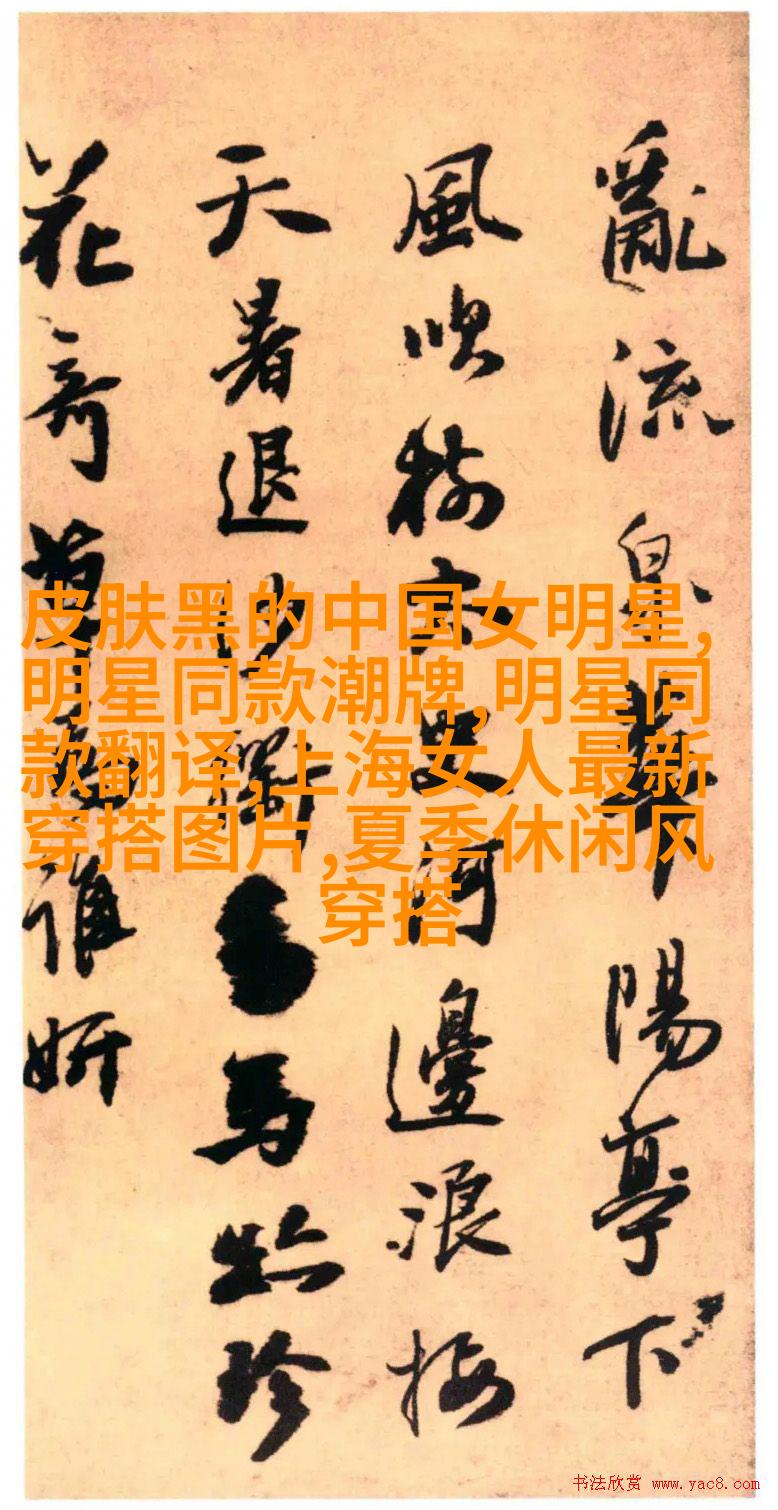 亂流華陽亭下
風吹河邊浪接
天暑退馬珍
花奇草誰妍
皮肤黑的中国女明星,
明星同款潮牌,明星同
款翻译,上海女人最新
穿搭图片,夏季休闲风
穿搭
书法欣赏 www.yac8.com